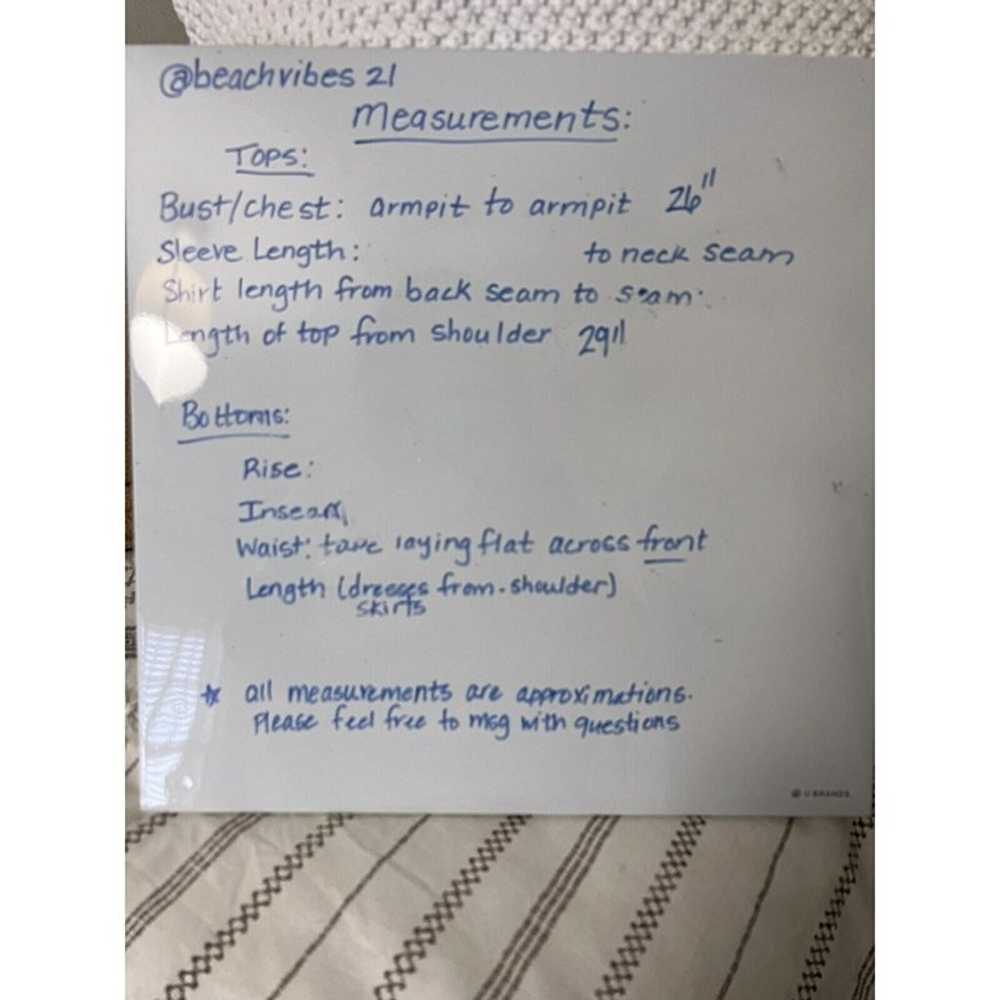 @beachvibes 21
Measurements:
Tops:
Bust/Chest: armpit to armpit 26"
Sleeve Length: to neck seam
Shirt length from back seam to seam:
Length of top from shoulder 29"
Bottoms:
Rise:
Inseam
Waist: laying flat across front
Length (dresses from shoulder)
skirts
* all measurements are approximations.
Please feel free to msg with questions
U BRANDS